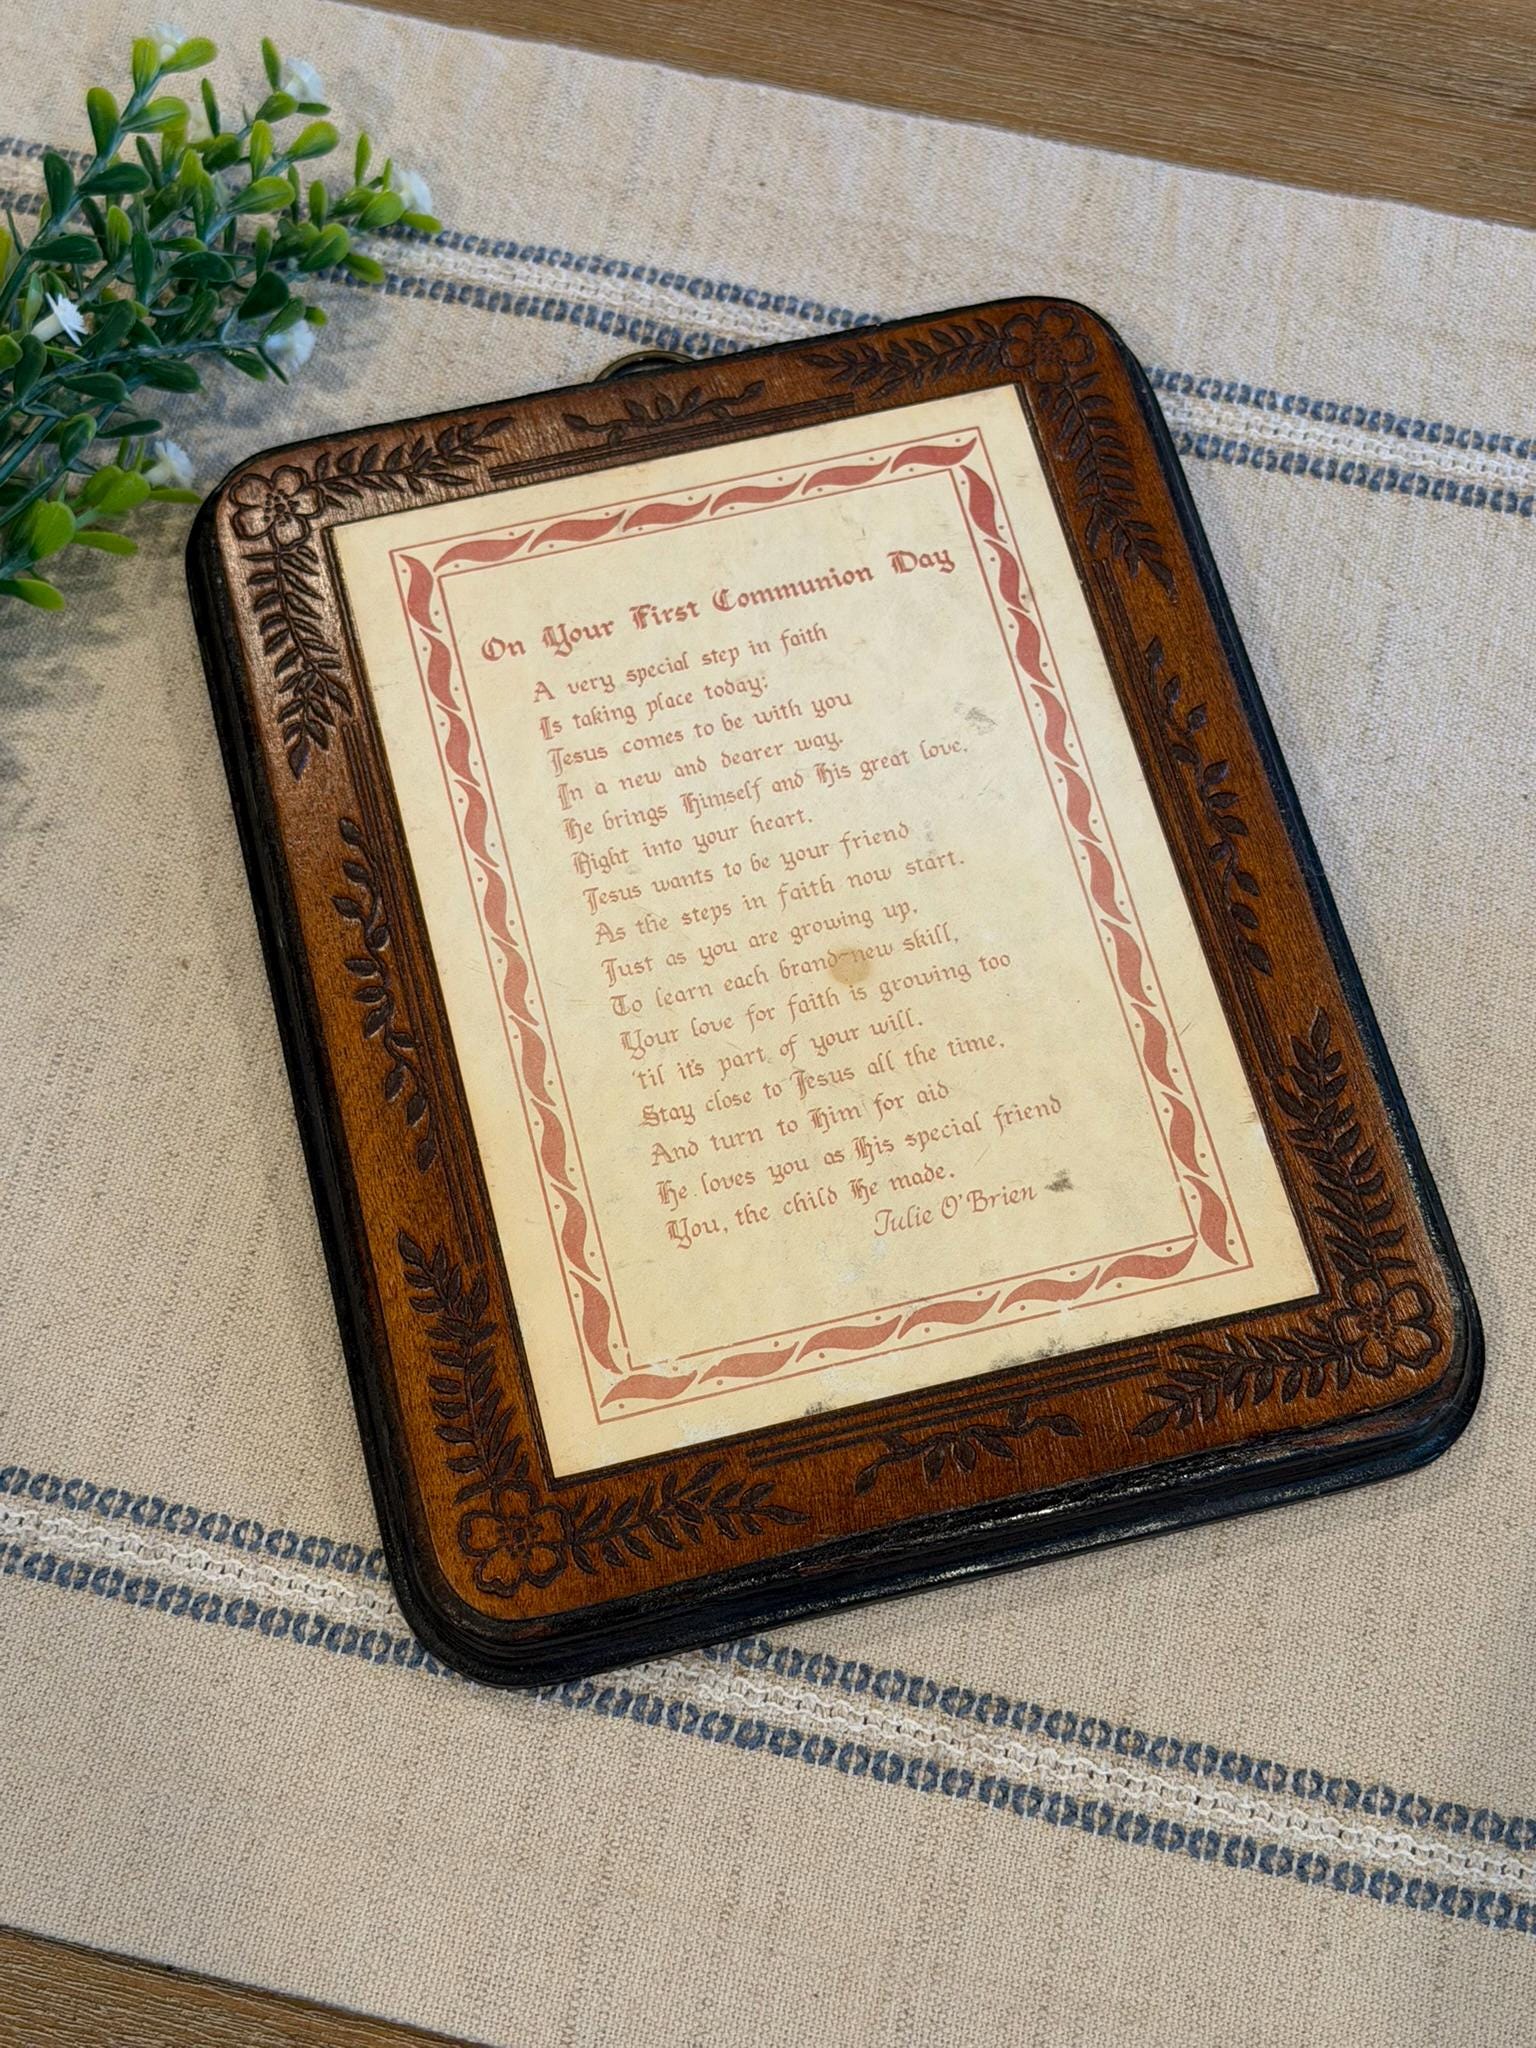 On Your First Communion Day
A very special step in faith
Is taking place today;
Jesus comes to be with you
In a new and dearer way.
He brings Himself and His great love,
Right into your heart.
Jesus wants to be your friend
As the steps in faith now start.
Just as you are growing up,
To learn each brand-new skill,
Your love for faith is growing too
'til it's part of your will.
Stay close to Jesus all the time,
And turn to Him for aid
He loves you as His special friend
You, the child He made.
Julie O'Brien